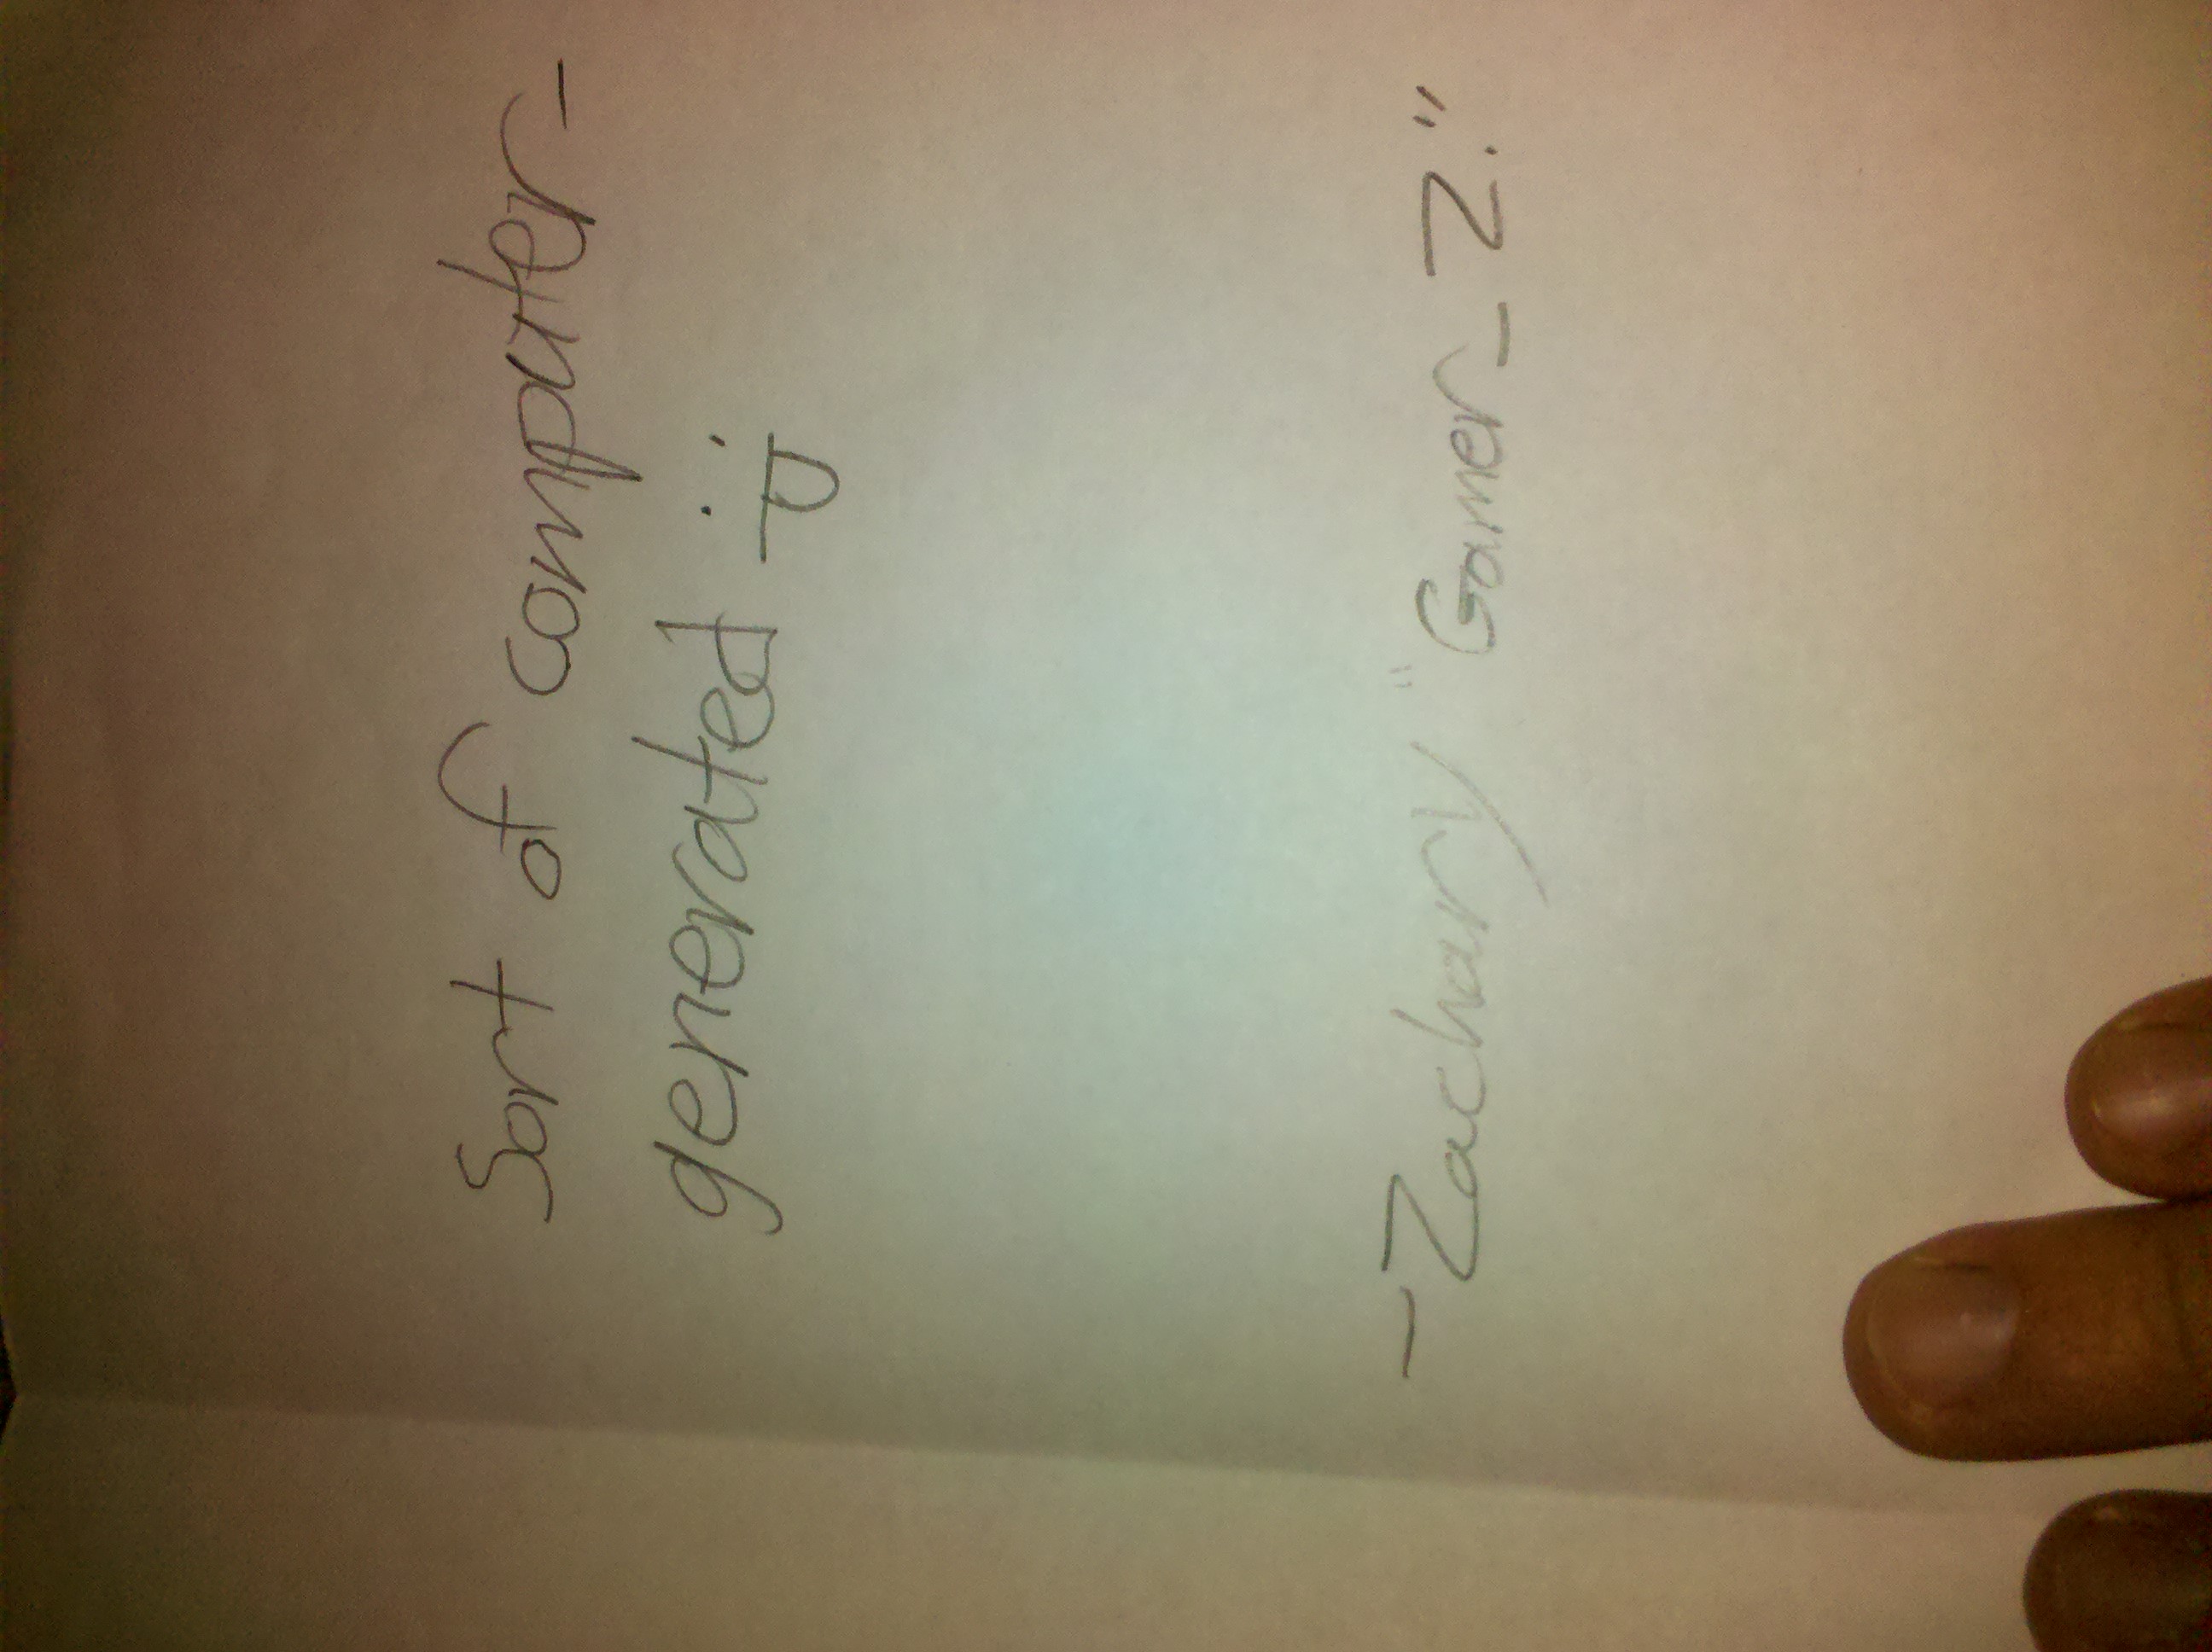 Sort of computer-
generated
-Zachary "Gamer_Z."